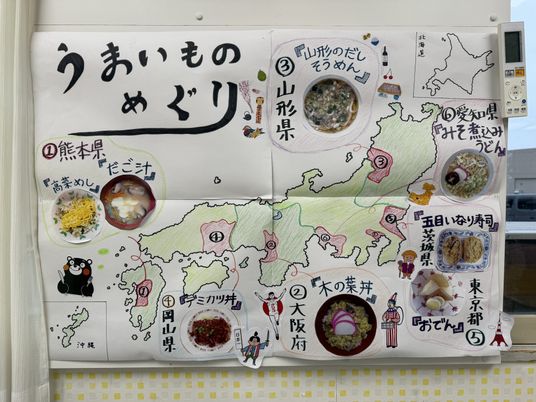 うまいもの
めぐり
①熊本県
『だご汁』
『高菜めし』
③山形県
『山形のだし
そうめん』
北海道
⑥愛知県
『みそ煮込み
うどん』
五目いなり寿司
茨城県
『おでん』
東京都⑤
②大阪府
『木の葉丼』
④岡山県
『デミカツ丼』
沖縄
①
②
③
④
⑤
⑥